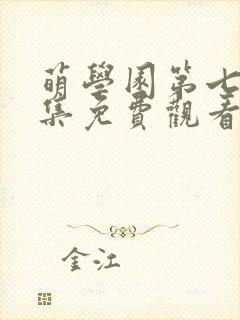 萌學園第七
集免費觀看
金江